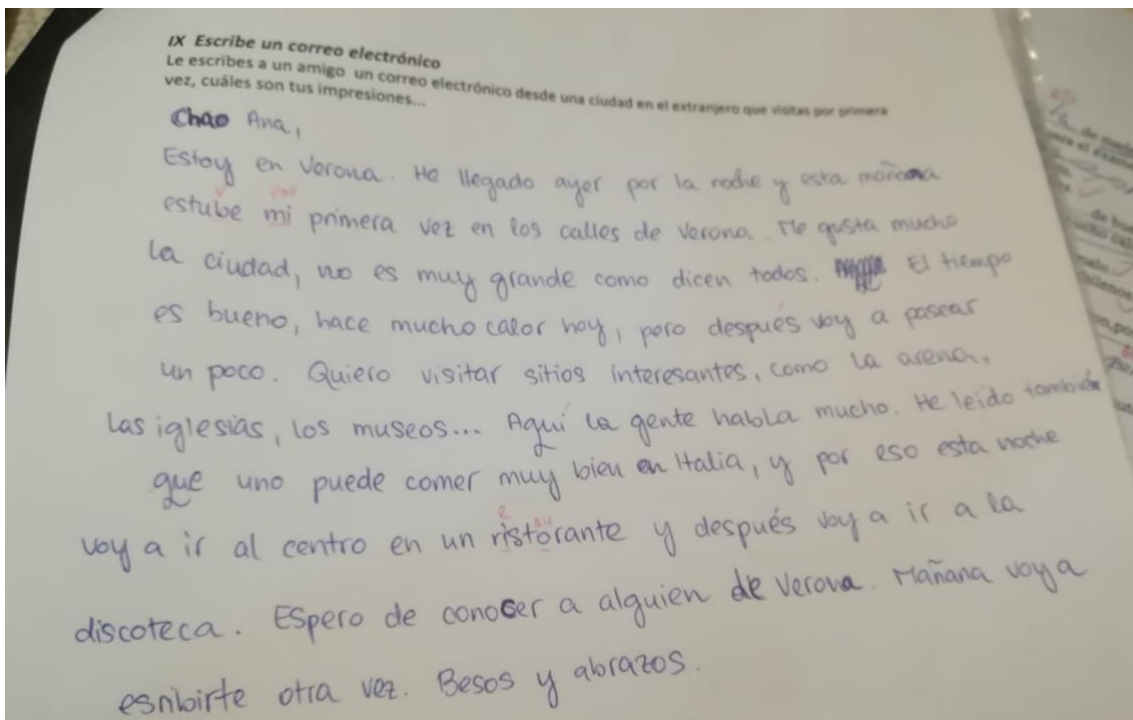 IX Escribe un correo electrónico
Le escribes a un amigo un correo electrónico desde una ciudad en el extranjero que visitas por primera
vez, cuáles son tus impresiones...
Chao Ana,
Estoy en Verona. He llegado ayer por la noche y esta mañana
estube mi primera vez en los calles de Verona. Me gusta mucho
la ciudad, no es muy grande como dicen todos. El tiempo
es bueno, hace mucho calor hoy, pero después voy a pasear
un poco. Quiero visitar sitios interesantes, como la arena,
las iglesias, los museos... Aquí la gente habla mucho. He leído también
que uno puede comer muy bien en Italia, y por eso esta noche
voy a ir al centro en un ristorante y después voy a ir a la
discoteca. Espero de conocer a alguien de Verona. Mañana voy a
esribirte otra vez. Besos y abrazos.